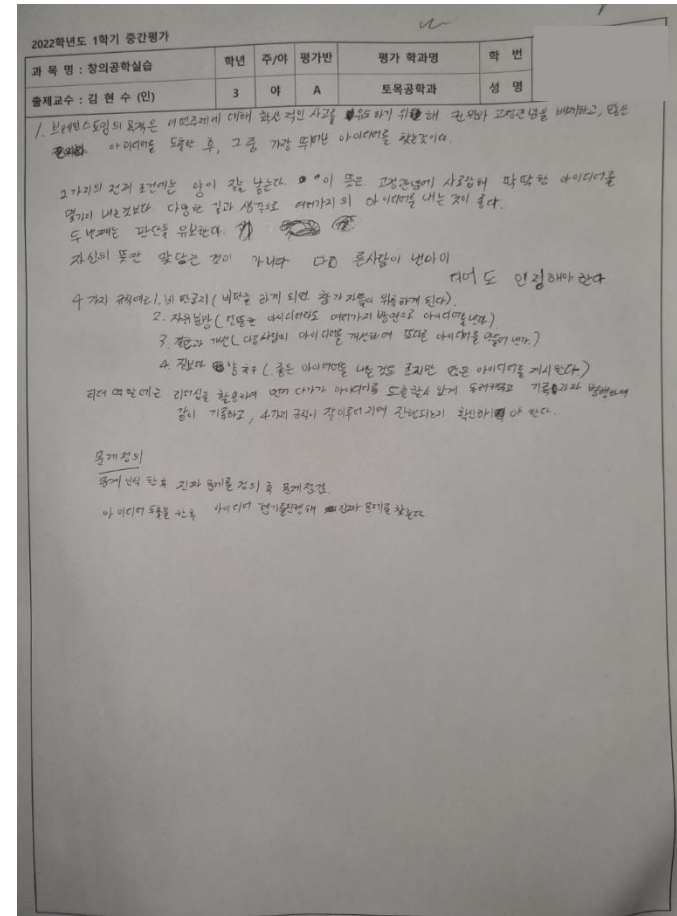 2022학년도 1학기 중간평가
과 목 명 : 창의공학실습 학년 주/야 평가반 평가 학과명 학 번
출제교수 : 김 현 수 (인) 3 야 A 토목공학과 성 명
1. 브레인스토밍의 목적은 어떤주제에 대해 확산적인 사고를 유도하기 위해 권위와 고정관념을 배제하고, 많은
아이디어를 도출한 후, 그중 가장 뛰어난 아이디어를 찾는것이다.
2가지의 전제 조건에는 양이 질을 낳는다. 이 뜻은 고정관념에 사로잡혀 딱딱한 아이디어를
내는것보다 다양한 길과 생각으로 여러가지의 아이디어를 내는 것이 좋다.
두번째는 판단을 유보한다.
자신의 뜻만 맞다는 것이 아니라 다른사람이 낸아이
디어도 인정해야한다
4가지 규칙에는 1. 비판금지 (비판을 하게 되면 참가자들이 위축하게 된다).
2. 자유분방 (엉뚱한 아이디어라도 여러가지 방면으로 아이디어를 낸다.)
3. 결합과 개선 (다른사람의 아이디어를 개선하여 또다른 아이디어를 만들어 낸다.)
4. 질보다 양 추구 (좋은 아이디어를 내는 것도 좋지만 많은 아이디어를 제시한다.)
리더 역할에는 리더십을 활용하여 먼저 다가가 아이디어를 도출할수 있게 도와주고 기록자와 병행하여
같이 기록하고, 4가지 규칙이 잘이루어지며 진행되는지 확인하여야 한다.
문제정의
문제 인식 한후 진짜 문제를 정의 후 문제점검
아이디어 도출을 한후 아이디어 평가를진행해 진짜 문제를 찾는다.